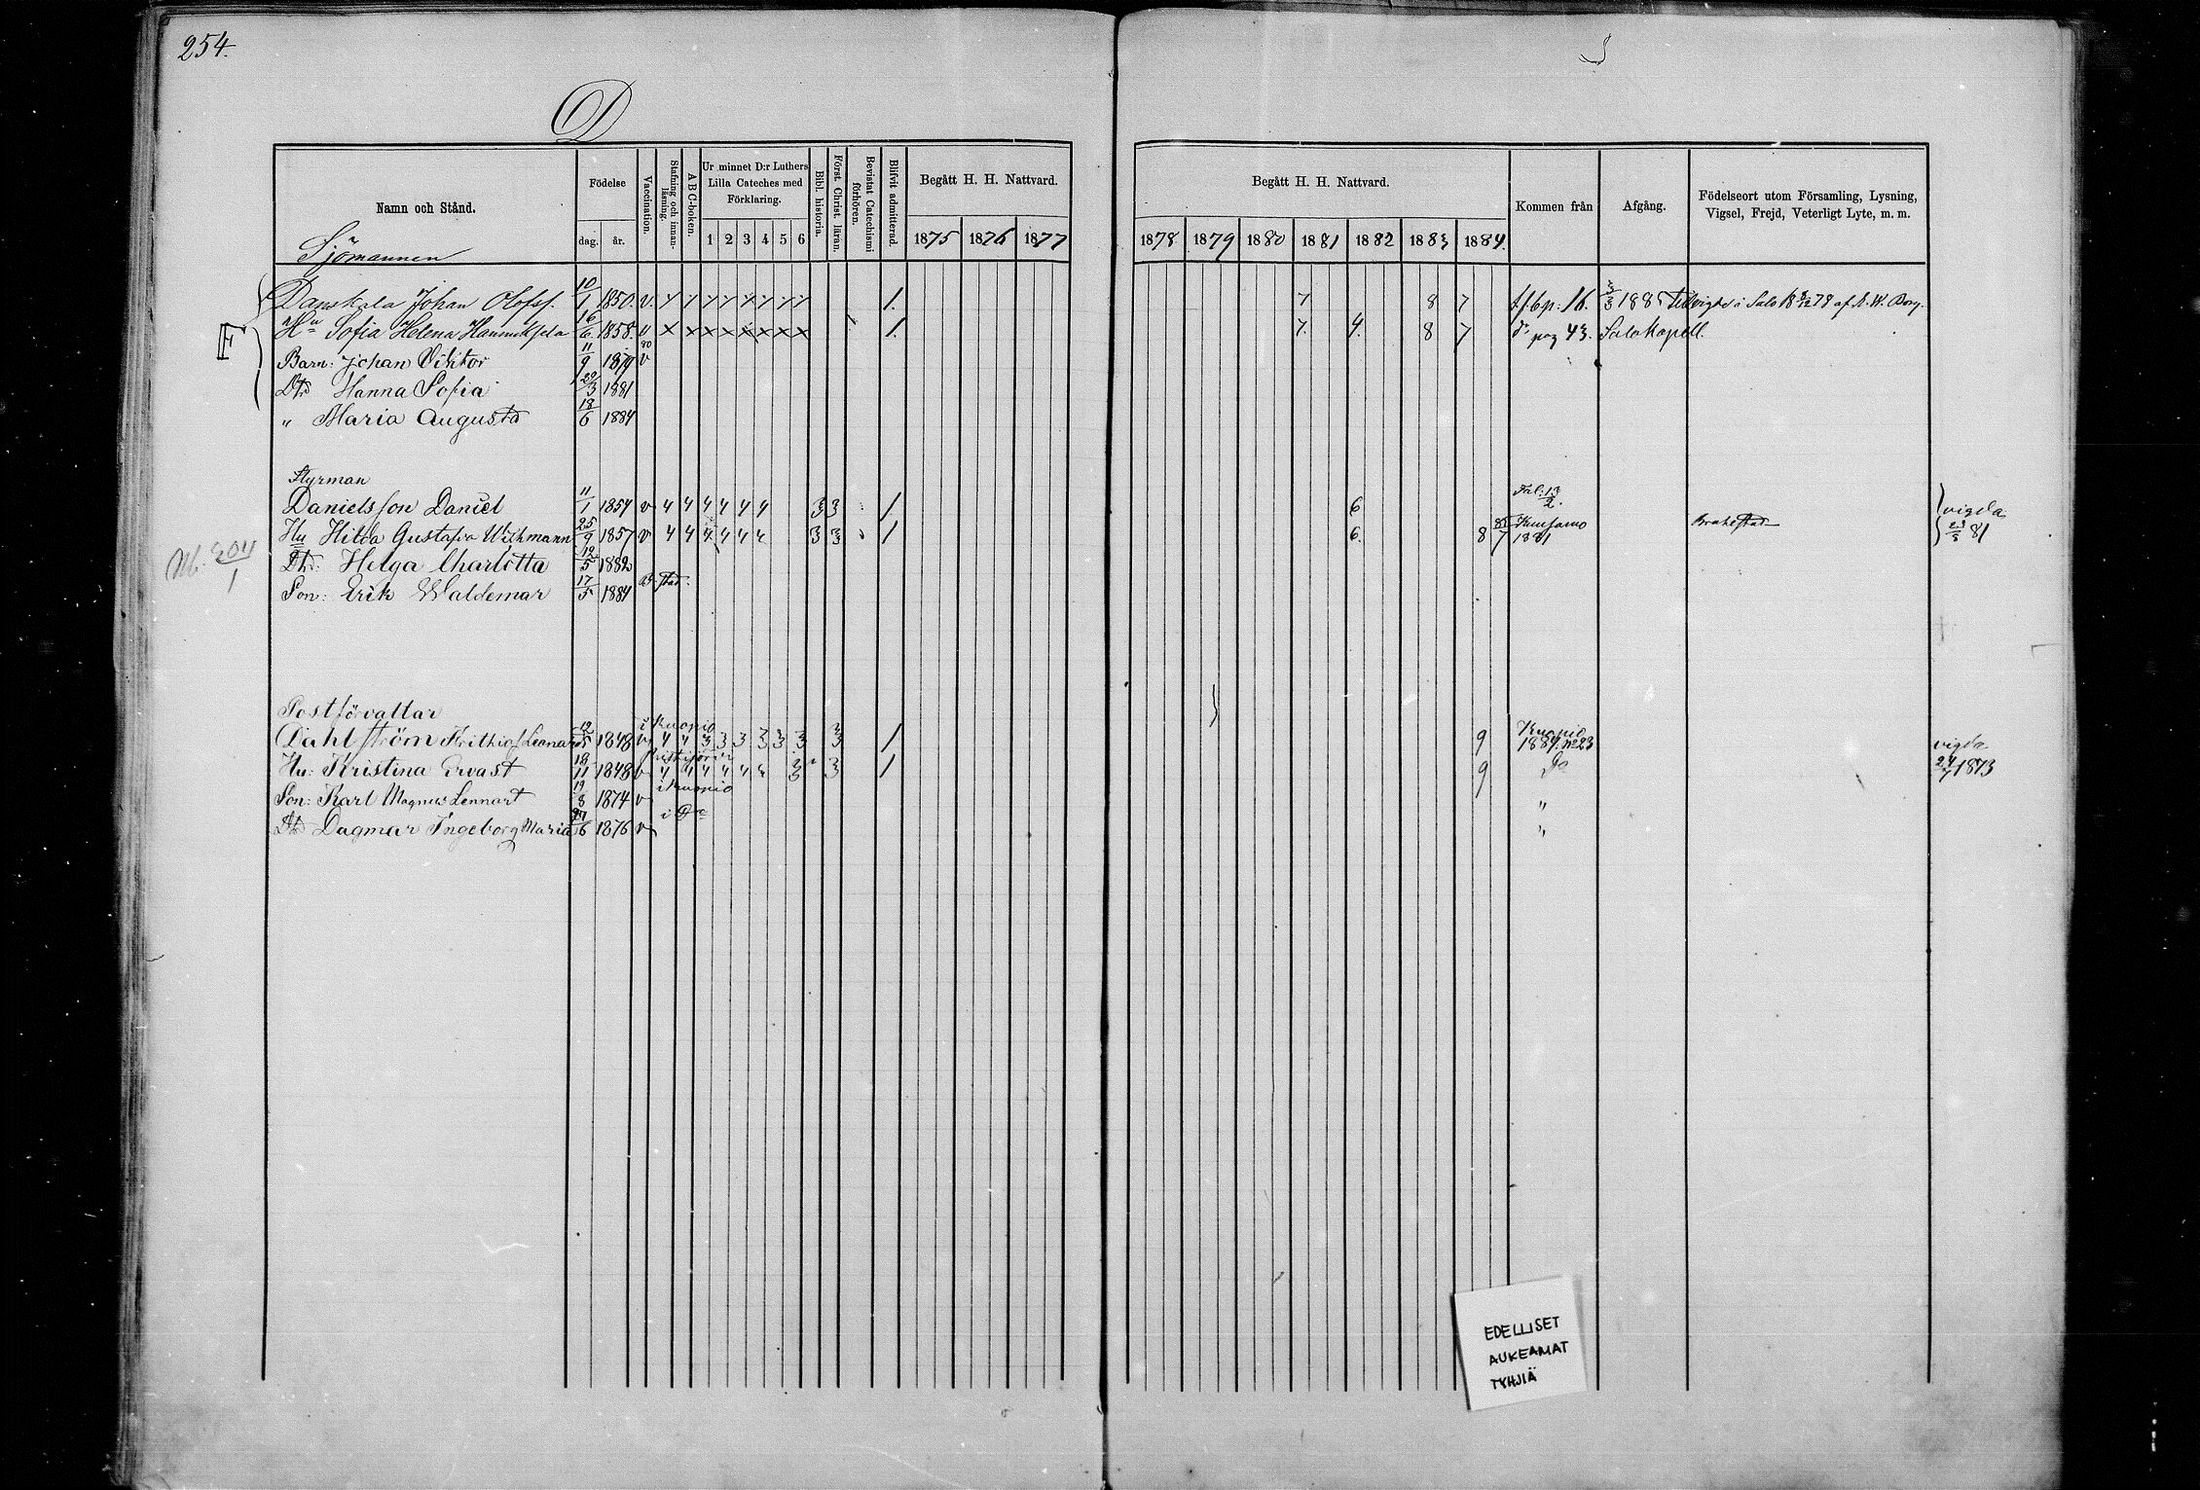 254.
D
Namn och Stånd.
Födelse
dag. år.
Vaccination.
Stafning och innanläsning.
ABC-boken.
Ur minnet D:r Luthers Lilla Cateches med Förklaring.
1 2 3 4 5 6
Bibl. historia.
Först. Christ. läran.
Bevistat Catechismi förhören.
Blifvit admitterad.
Begått H. H. Nattvard.
1875 1876 1877
Begått H. H. Nattvard.
1878 1879 1880 1881 1882 1883 1884.
Kommen från
Afgång.
Födelseort utom Församling, Lysning, Vigsel, Frejd, Veterligt Lyte, m. m.
Sjömannen
Danskala Johan Olofss. 10/1 1850. v. 1. 7 8 7 p. 16. i Salo 78 af
Hu Sofia Helena 16/6 1858. v x x x x x x x x 1. 7. 4. 8 7 pag 43. Salo Kapell.
Barn: Johan Viktor 11/9 1879 v
Dtr Hanna Sofia 29/3 1881
" Maria Augusta 18/6 1884
Styrman
Danielsson Daniel 11/1 1854 v 4 4 4 4 4 4 3 3 1 6
Hu Hilda Gustafva Wichmann 25/9 1857 v 4 4 4 4 4 4 3 3 1 6. 8 1881 Brahestad vigda 81
Dtr: Helga Charlotta 12/5 1882
Son: Erik Waldemar 17/5 1884
Postförvaltar
Dahlström Frithiof Leonard 12/5 1848 v i Kuopio 4 4 3 3 3 3 3 3 3 1 9 Kuopio 1884 No 23
Hu: Kristina Ervast 18/11 1848 v 4 4 4 4 4 4 3 3 1 9 Do vigda 24/7 1873
Son: Karl Magnus Lennart 19/8 1874 v i Kuopio "
Dtr Dagmar Ingeborg Maria 27/6 1876 v i Do "
EDELLISET
AUKEAMAT
TYHJIÄ